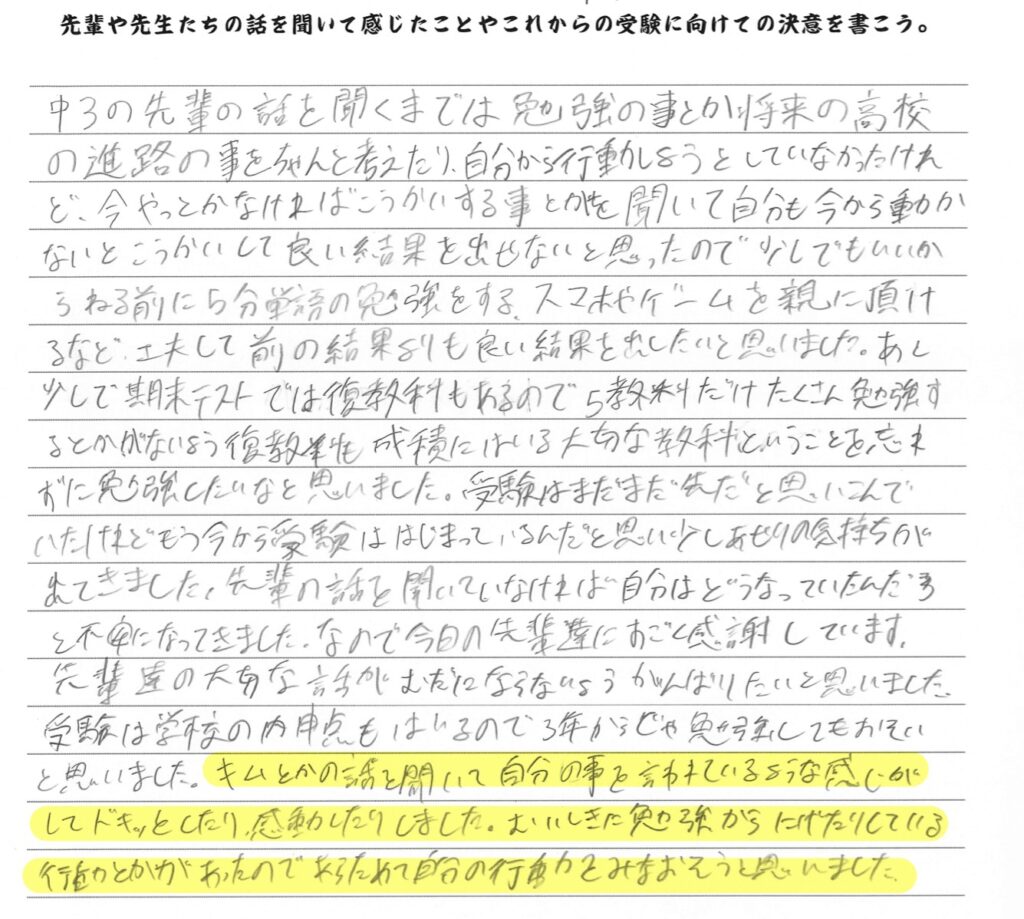 先輩や先生たちの話を聞いて感じたことやこれからの受験に向けての決意を書こう。
中3の先輩の話を聞くまでは勉強の事とか将来の高校
の進路の事をちゃんと考えたり、自分から行動しようとしていなかったけれ
ど、今やっとかなければこうかいする事とかを聞いて自分も今から動か
ないとこうかいして良い結果を出せないと思ったので少しでもいいか
らねる前に5分単語の勉強をする、スマホやゲームを親に預け
るなど、工夫して前の結果よりも良い結果を出したいと思いました。あと
少しで期末テストでは復教科もあるので5教科だけたくさん勉強す
るとかがないよう復教科も成積にはいる大切な教科ということを忘れ
ずに勉強したいなと思いました。受験はまだまだ先だと思いこんで
いたけれどもう今から受験ははじまっているんだと思い少しあせりの気持ちが
出てきました。先輩の話を聞いていなければ自分はどうなっていたんだろ
と不安になってきました。なので今日の先輩達にすごく感謝しています。
先輩達の大切な話がむだにならないようがんばりたいと思いました。
受験は学校の内申点もはいるので3年からじゃ勉強してもおそい
と思いました。キムとかの話を聞いて自分の事を言われているような感じが
してドキッとしたり、感動したりしました。むいしきに勉強からにげたりしている
行動とかがあったのであらためて自分の行動をみなおそうと思いました。